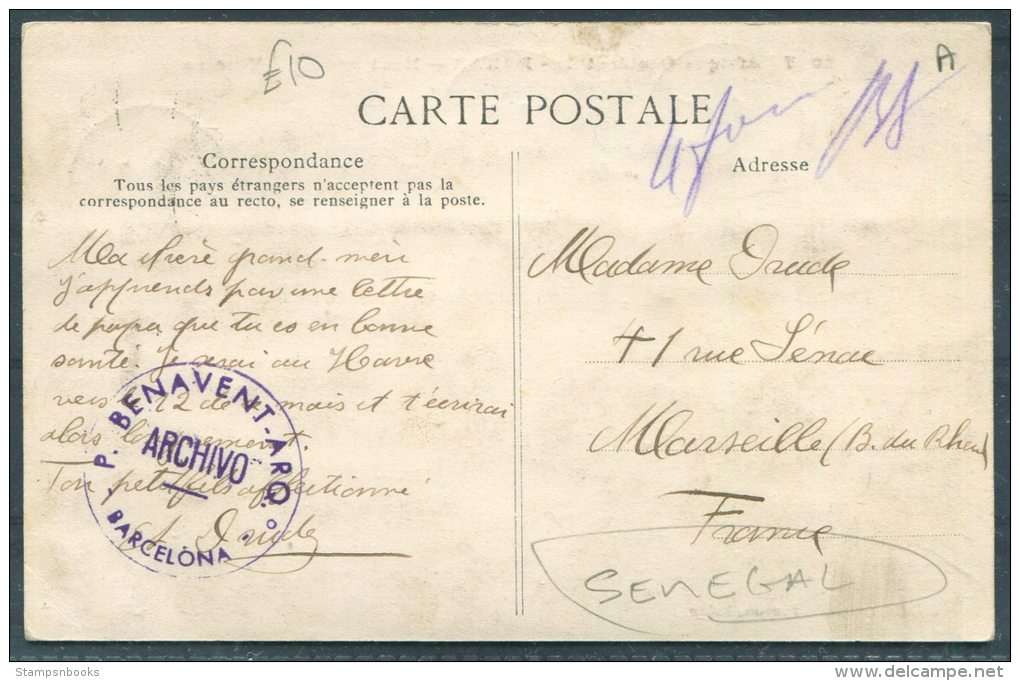 £10
A
CARTE POSTALE
Correspondance
Tous les pays étrangers n'acceptent pas la
correspondance au recto, se renseigner à la poste.
Adresse
Ma chère grand-mère
J'apprends par une lettre
de papa que tu es en bonne
santé. Je serai au Havre
vers le 12 de ce mois et t'écrirai
alors longuement.
Ton petit fils affectionné
A Drude
Madame Drude
41 rue Sénac
Marseille (B. du Rhône)
France
SENEGAL
P. BENAVENT-ARQ.º
ARCHIVO
BARCELONA
Stampsnbooks
www.delcampe.net